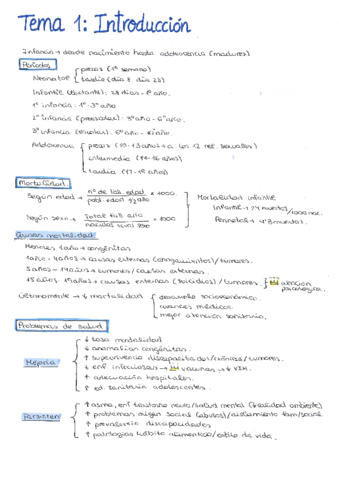 Tema 1: Introducción
Infancia → desde nacimiento hasta adolescencia (madurez)
Períodos
Neonatal precoz (1ª semana)
tardío (día 8 día 28)
Infantil (lactante): 28 días - 1º año.
1ª infancia: 1º-3º año
2ª infancia (preescolar): 3º año - 6º año.
3ª infancia (escolar): 6º año -
Adolescencia precoz (10-13 años) → a los 12 rel. sexuales)
intermedia (14-16 años)
tardía (17-19 años)
Mortalidad.
Según edad → nº de fall. edad x 1000.
Según sexo → total fall año x 1000
Mortalidad infantil
Infantil →
Perinatal →
Causas mortalidad
Menores 1 año → congénitas
1 año - 4 años → causas externas /tumores.
5 años - 14 años → tumores/causas externas.
15 años 19 años → causas externas (suicidios)/tumores. atención psicológica.
Últimamente → ↓ mortalidad desarrollo socioeconómico.
avances médicos.
mejor atención sanitaria.
Problemas de salud
Mejoría
↓ tasa mortalidad
↓ anomalías congénitas.
↑ supervivencia discapacitados/crónicos/tumores.
↓ enf. infecciosas → vacunas → ↓ VIH.
↑ adecuación hospitales.
↑ ed. sanitaria adolescentes.
Persisten
↑ asma, enf trastorno neuro/salud mental (realidad ambiente)
↑ problemas origen social (abusos)/aislamiento fam/social
↑ prevalencia discapacidades
↑ patologías hábito alimenticio/estilo de vida.